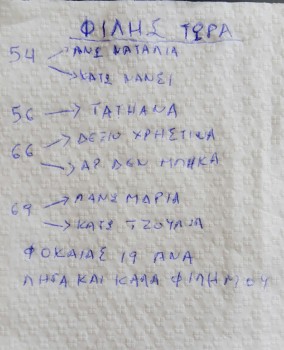 ΦΙΛΗΣ ΤΩΡΑ
54 ΑΝΩ ΝΑΤΑΛΙΑ
ΚΑΤΩ ΝΑΝΣΙ
56 ΤΑΤΗΑΝΑ
66 ΔΕΞΙΟ ΧΡΗΣΤΙΝΑ
ΑΡ ΔΕΝ ΜΠΗΚΑ
69 ΠΑΝΩ ΜΑΡΙΑ
ΚΑΤΩ ΤΖΟΥΛΙΑ
ΦΩΚΑΙΑΣ 19 ΑΝΑ
ΠΗΓΑ ΚΑΙ ΚΑΛΑ ΦΙΛΗ ΜΟΥ